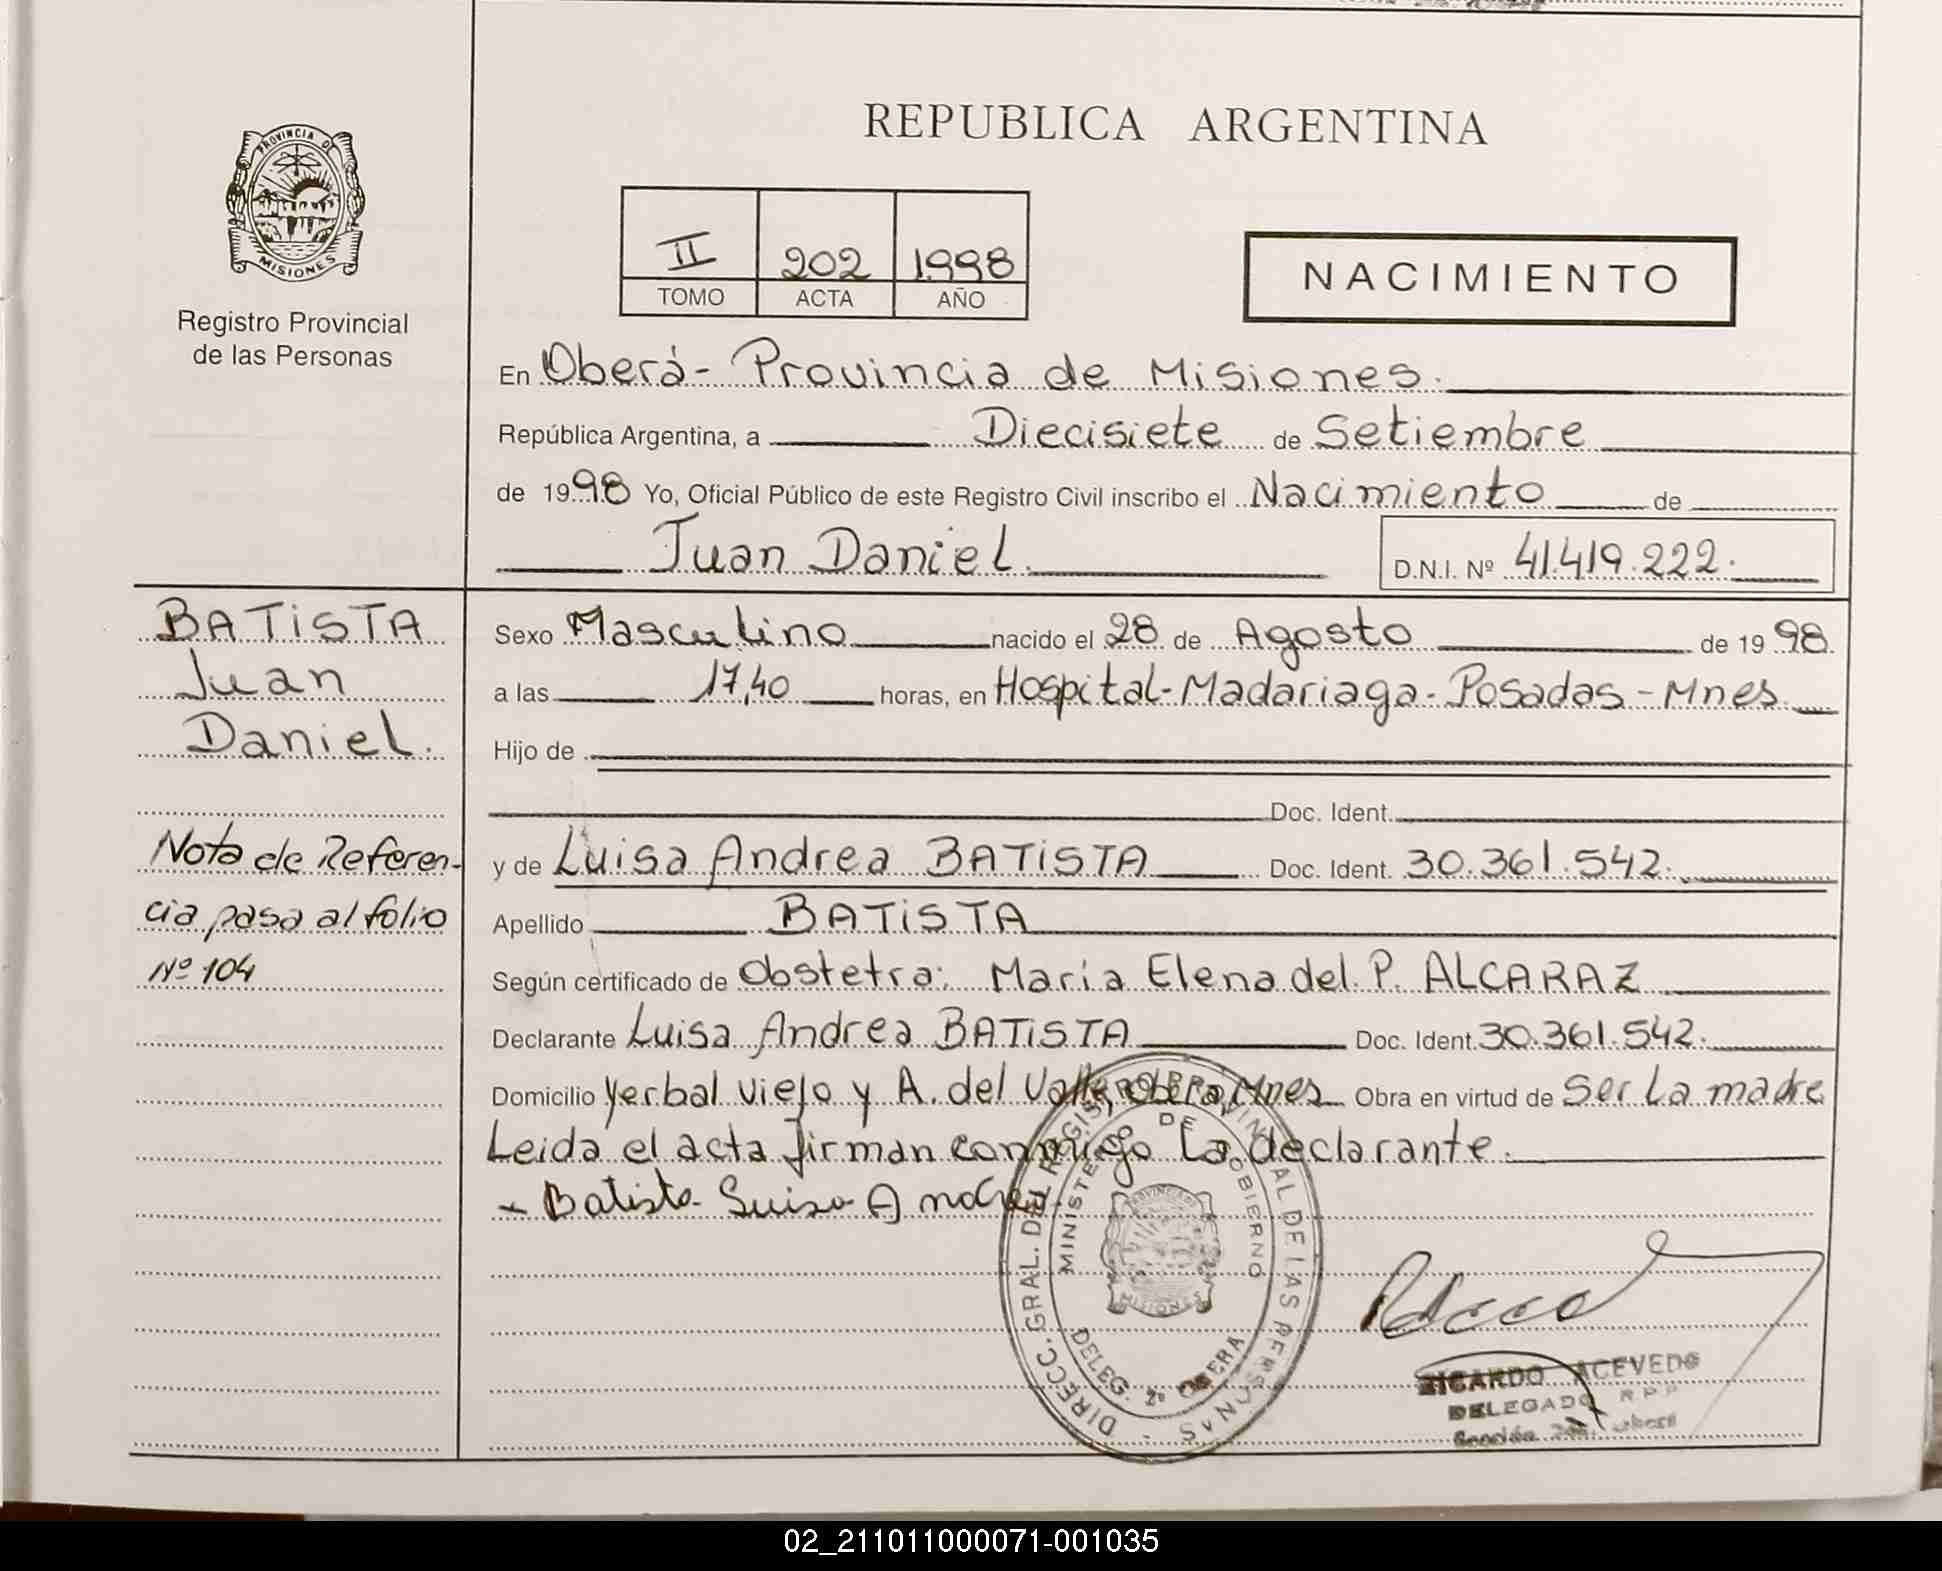 REPUBLICA ARGENTINA
PROVINCIA DE
MISIONES
Registro Provincial
de las Personas
II 202 1998
TOMO ACTA AÑO
NACIMIENTO
En Oberá - Provincia de Misiones.
República Argentina, a Diecisiete de Setiembre
de 1998 Yo, Oficial Público de este Registro Civil inscribo el Nacimiento de
Juan Daniel. D.N.I. Nº 41.419.222.
BATISTA
Juan
Daniel.
Nota de Referen-
cia pasa al folio
Nº 104
Sexo Masculino nacido el 28 de Agosto de 1998.
a las 17,40 horas, en Hospital - Madariaga - Posadas - Mnes.
Hijo de
Doc. Ident.
y de Luisa Andrea BATISTA Doc. Ident. 30.361.542.
Apellido BATISTA
Según certificado de Obstetra: Maria Elena del P. ALCARAZ
Declarante Luisa Andrea BATISTA Doc. Ident. 30.361.542.
Domicilio Yerbal Viejo y A. del Valle, Oberá, Mnes Obra en virtud de Ser La madre
Leida el acta firman conmigo La declarante.
Batista Luisa Andrea
DIRECC. GRAL. DEL REGISTRO PROVINCIAL DE LAS PERSONAS
MINISTERIO DE GOBIERNO
PROVINCIA DE
MISIONES
DELEG. 2º OBERA
RICARDO ACEVEDO
DELEGADO R.P.P
Sección 2da. Oberá
02_211011000071-001035